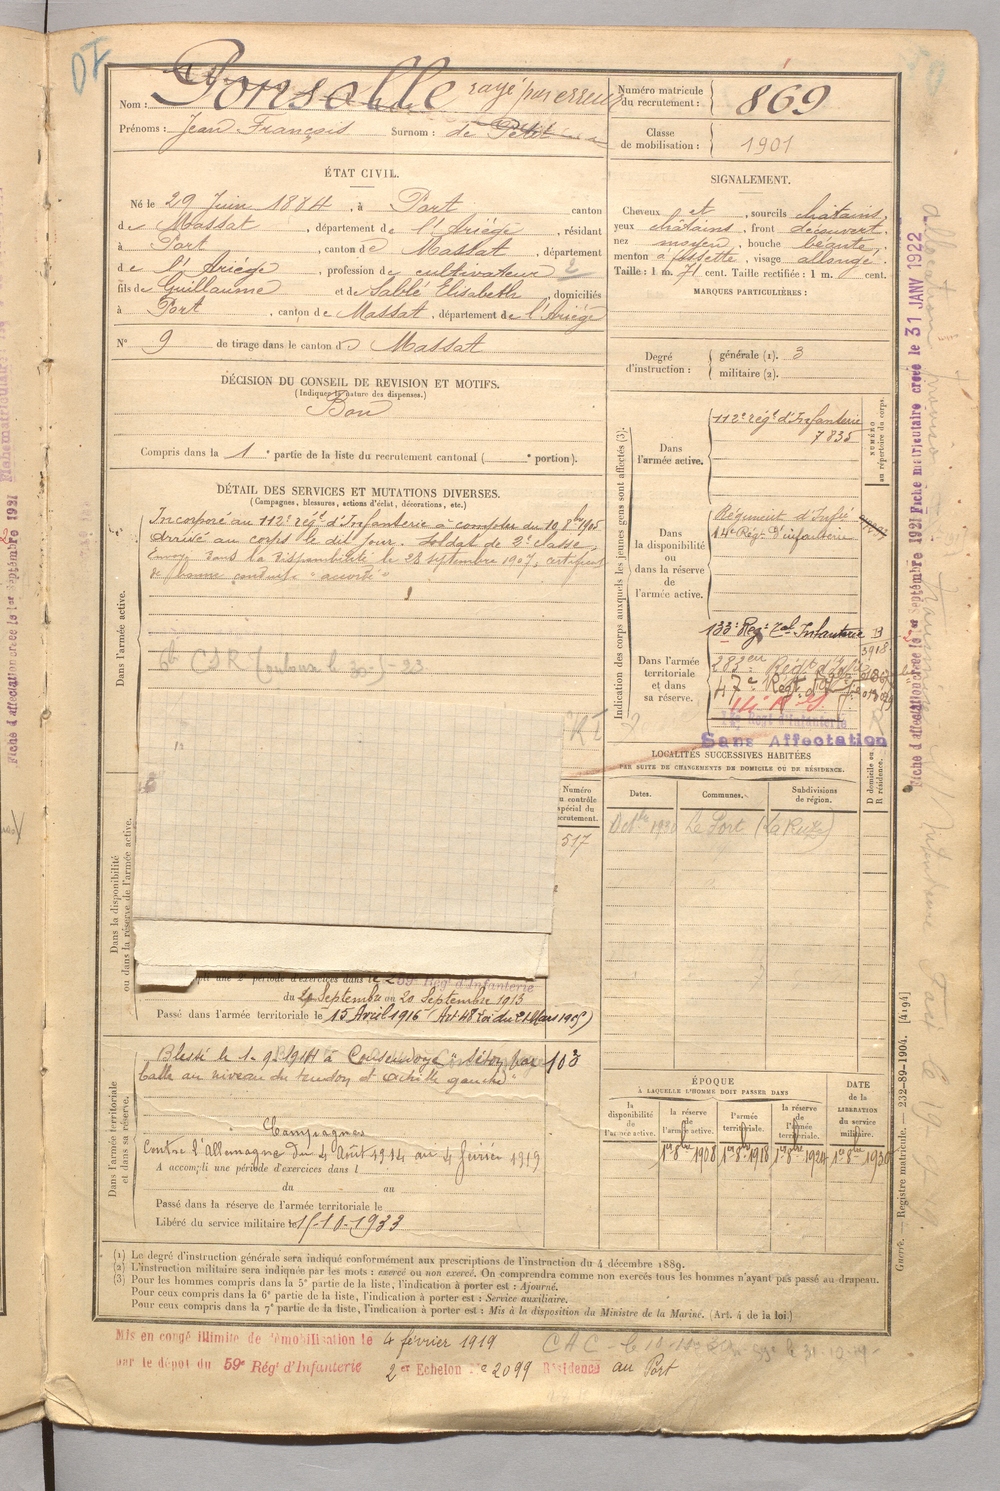 Nom : Ponsolle rayé par erreur
Prénoms : Jean François Surnom : de Petit
Numéro matricule du recrutement : 869
Classe de mobilisation : 1901
ÉTAT CIVIL.
Né le 29 Juin 1884, à Port canton
de Massat, département de l'Ariège, résidant
à Port, canton de Massat, département
de l'Ariège, profession de cultivateur 2
fils de Guillaume et de Sablé Elisabeth, domiciliés
à Port, canton de Massat, département de l'Ariège
N° 9 de tirage dans le canton de Massat
SIGNALEMENT.
Cheveux et, sourcils châtains,
yeux châtains, front découvert,
nez moyen, bouche béante,
menton à fossette, visage allongé.
Taille : 1 m. 71 cent. Taille rectifiée : 1 m. cent.
MARQUES PARTICULIÈRES :
Degré d'instruction : générale (1). 3
militaire (2).
DÉCISION DU CONSEIL DE REVISION ET MOTIFS.
(Indiquer la nature des dispenses.)
Bon
Compris dans la 1e partie de la liste du recrutement cantonal ( e portion).
DÉTAIL DES SERVICES ET MUTATIONS DIVERSES.
(Campagnes, blessures, actions d'éclat, décorations, etc.)
Dans l'armée active.
Incorporé au 112e régt d'Infanterie à compter du 10 8bre 1905
arrivé au corps le dit jour. Soldat de 2e classe.
Envoyé dans la disponibilité le 28 septembre 1907, certificat
de bonne conduite "accordé"
Dans la disponibilité ou dans la réserve de l'armée active.
Numéro au contrôle spécial du recrutement.
517
2e période d'exercices dans le 259e Régt d'Infanterie
du 4 Septembre au 20 Septembre 1913
Passé dans l'armée territoriale le 15 Avril 1916 (Art 48 Loi du 21 Mars 1905)
Dans l'armée territoriale et dans sa réserve.
Blessé le 1-9-1914 à Consenvoye "séton par 103
balle au niveau du tendon d'Achille gauche"
Campagnes
Contre l'Allemagne du 4 Août 1914 au 4 février 1919
A accompli une période d'exercices dans l
du au
Passé dans la réserve de l'armée territoriale le
Libéré du service militaire le 15-10-1933
Indication des corps auxquels les jeunes gens sont affectés (3).
NUMÉRO au répertoire du corps.
Dans l'armée active.
112e régt d'Infanterie
7835
Dans la disponibilité ou dans la réserve de l'armée active.
Régiment d'Infie
14e Régt d'infanterie
Dans l'armée territoriale et dans sa réserve.
133e Régt tal Infanterie
3918
283e Régt d'Infie
47e Régt d'Infie
Sans Affectation
LOCALITÉS SUCCESSIVES HABITÉES
PAR SUITE DE CHANGEMENTS DE DOMICILE OU DE RÉSIDENCE.
D domicile ou R résidence.
Dates. Communes. Subdivisions de région.
Octbre 1930 Le Port
ÉPOQUE
À LAQUELLE L'HOMME DOIT PASSER DANS
la disponibilité de l'armée active.
la réserve de l'armée active.
l'armée territoriale.
la réserve de l'armée territoriale.
DATE de la LIBÉRATION du service militaire.
1er 8bre 1908 1er 8bre 1918 1er 8bre 1924 1er 8bre 1930
(1) Le degré d'instruction générale sera indiqué conformément aux prescriptions de l'instruction du 4 décembre 1889.
(2) L'instruction militaire sera indiquée par les mots : exercé ou non exercé. On comprendra comme non exercés tous les hommes n'ayant pas passé au drapeau.
(3) Pour les hommes compris dans la 5e partie de la liste, l'indication à porter est : Ajourné.
Pour ceux compris dans la 6e partie de la liste, l'indication à porter est : Service auxiliaire.
Pour ceux compris dans la 7e partie de la liste, l'indication à porter est : Mis à la disposition du Ministre de la Marine. (Art. 4 de la loi.)
Mis en congé illimité de démobilisation le 4 février 1919
par le dépôt du 59e Régt d'Infanterie 2e Echelon N° 2099 Résidence au Port
Guerre. — Registre matricule. — 232-89-1904. [4194]
Fiche d'affectation créée le 1er Septembre 1921
Fiche matriculaire créée le 31 JANV 1922